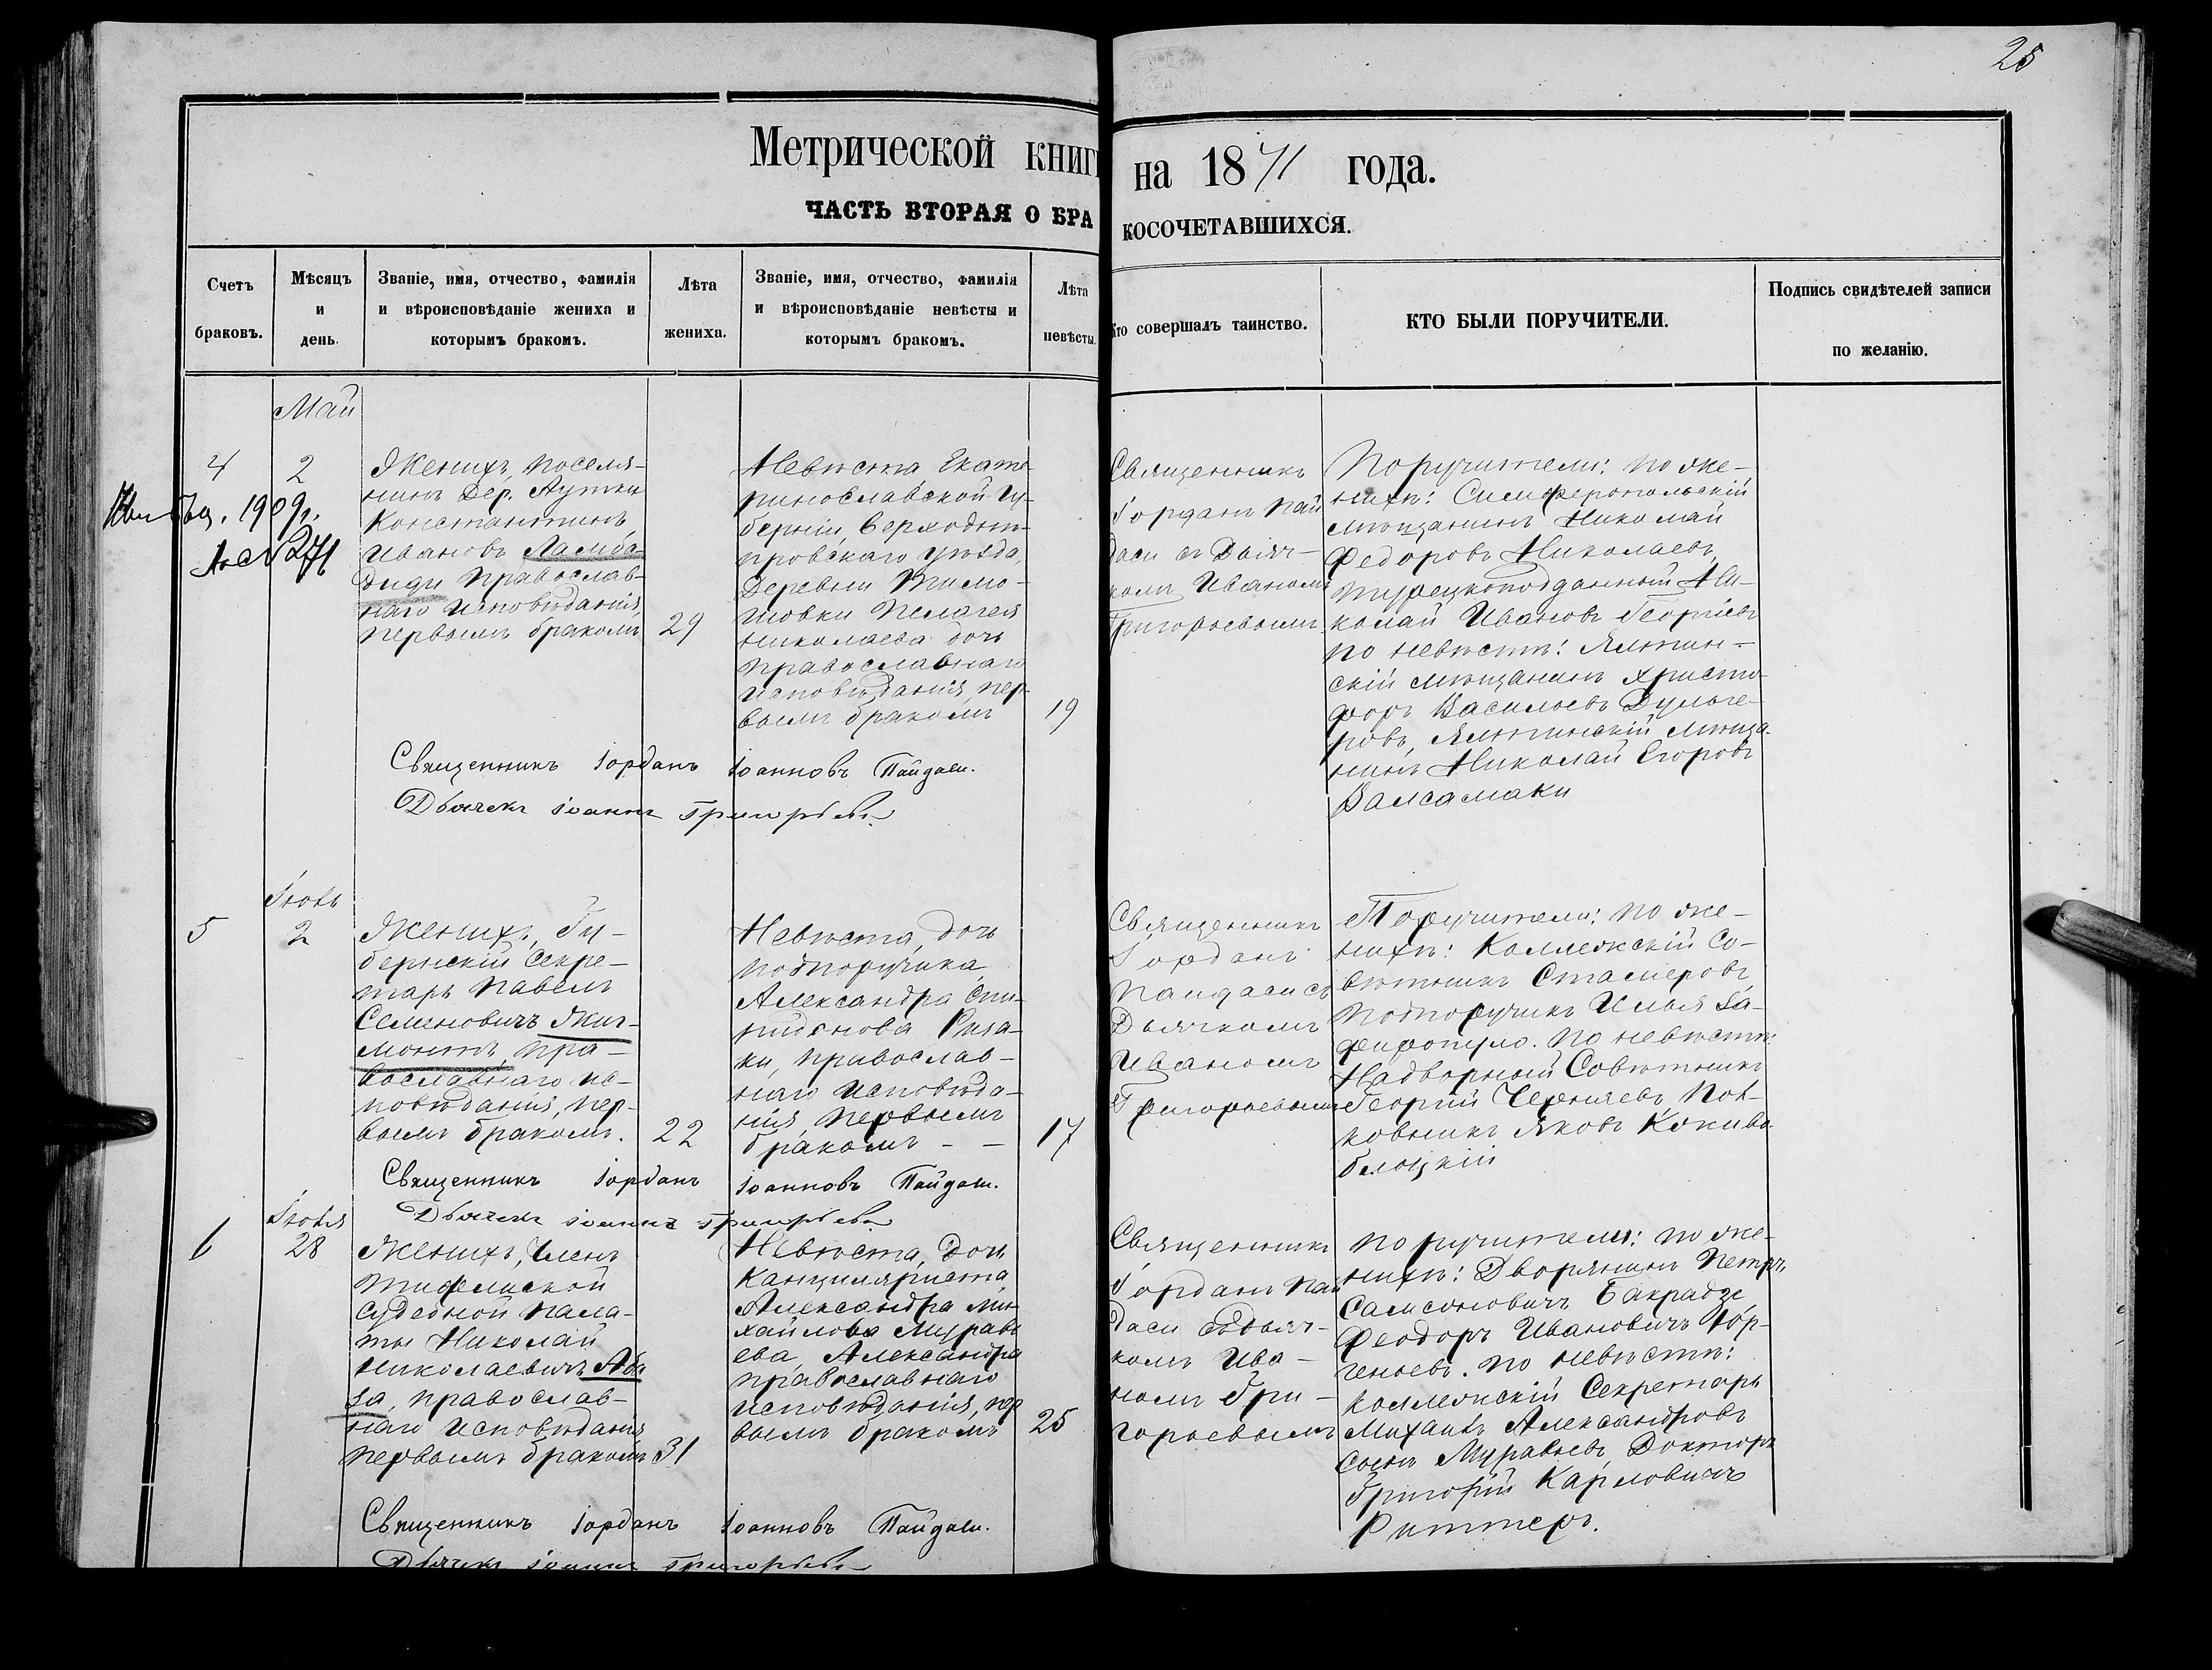 25
Метрической книги на 1871 года.
ЧАСТЬ ВТОРАЯ О БРАКОСОЧЕТАВШИХСЯ.
Счетъ браковъ.
Мѣсяцъ и день.
Званіе, имя, отчество, фамилія
и вѣроисповѣданіе жениха и
которымъ бракомъ.
Лѣта жениха.
Званіе, имя, отчество, фамилія
и вѣроисповѣданіе невѣсты и
которымъ бракомъ.
Лѣта невѣсты.
Кто совершалъ таинство.
КТО БЫЛИ ПОРУЧИТЕЛИ.
Подпись свидѣтелей записи
по желанію.
Май
4
2
1909 г.
Женихъ, поселя-
нинъ Дер. Аутки
Константинъ
Ивановъ Ламба-
диди православ-
наго исповѣданія
первымъ бракомъ
29
Невѣста Екате-
ринославской гу-
берніи, Верходнѣ-
провскаго уѣзда,
Деревни Тимо-
шовки Пелагея
Николаева дочь
православнаго
исповѣданія, пер-
вымъ бракомъ
19
Священникъ
Іорданъ Пай
даси съ Дьяч-
комъ Иваномъ
Григорьевымъ
Поручители: по же-
нихѣ: Симферопольскій
мѣщанинъ Николай
Федоровъ Николаевъ,
турецкоподданный Ни-
колай Ивановъ Георгіевъ
по невѣстѣ: Ялтин-
скій мѣщанинъ Христо-
форъ Васильевъ Дульге-
ровъ, Ялтинскій мѣща-
нинъ Николай Егоровъ
Валсамаки
Священникъ Іорданъ Іоанновъ Пайдаси.
Дьячекъ Іоаннъ Григорьевъ
Іюнь
5
2
Женихъ, Гу-
бернскій Секре-
тарь Павелъ
Семеновичъ Жиг-
монтъ, пра-
вославнаго ис-
повѣданія, пер-
вымъ бракомъ.
22
Невѣста, дочь
подпоручика
Александра Спи-
ридонова Риза-
ки, православ-
наго исповѣда-
нія, первымъ
бракомъ - -
17
Священникъ
Іорданъ
Пайдаси съ
Дьячкомъ
Иваномъ
Григорьевымъ
Поручители: по же-
нихѣ: Коллежскій Со-
вѣтникъ Стамеровъ,
подпоручикъ Илья За-
фиропуло. по невѣстѣ:
Надворный Совѣтникъ
Георгій Черняевъ, Пол-
ковникъ Яковъ
Священникъ Іорданъ Іоанновъ Пайдаси.
Дьячекъ Іоаннъ Григорьевъ
Іюля
6
28
Женихъ, Членъ
Тифлиской
Судебной Пала-
ты Николай
Николаевичъ Аба
за, православ-
наго исповѣданія
первымъ бракомъ
31
Невѣста, Дочь
Канциляриста
Александра Ми-
хайлова Муравь
ева, Александра
православнаго
исповѣданія, пер
вымъ бракомъ
25
Священникъ
Іорданъ Пай
даси съ дьяч-
комъ Ива-
номъ Гри-
горьевымъ
поручители: по же-
нихѣ: Дворянинъ Петръ
Самсоновичъ Бакрадзе,
Феодоръ Ивановичъ Юр-
геньевъ. по невѣстѣ:
Коллежскій Секретарь
Михаилъ Александровъ
сынъ Муравьевъ, Докторъ
Григорій Карловичъ
Риттеръ.
Священникъ Іорданъ Іоанновъ Пайдаси.
Дьячекъ Іоаннъ Григорьевъ